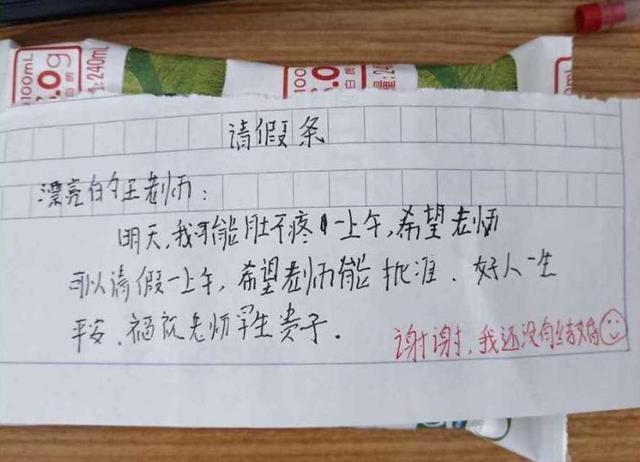 100mL
.0g
白质
量:240mL
100
.0
白质
量:2
请假条
漂亮的王老师:
明天,我可能肚子疼一上午,希望老师
可以请假一上午,希望老师能批准.好人一生
平安.祝老师早生贵子.
谢谢,我还没有结婚